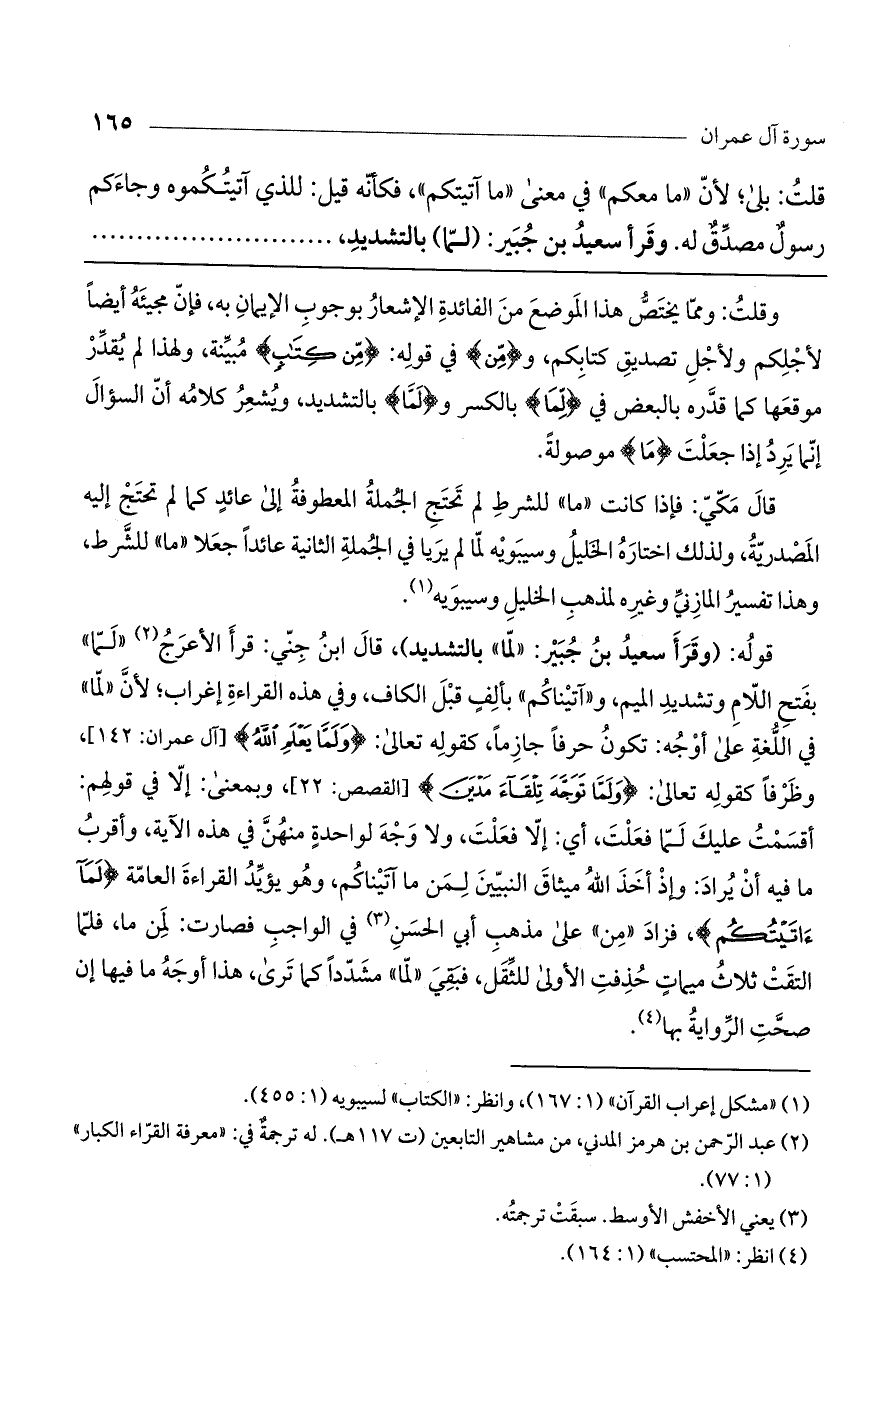 سورة آل عمران ١٦٥
قلتُ: بلىٰ؛ لأنّ «ما معكم» في معنىٰ «ما آتيتكم»، فكأنّه قيل: للذي آتيتُكموه وجاءَكم
رسولٌ مصدِّقٌ له. وقَرأ سعيدُ بن جُبَير: (لـمّا) بالتشديدِ، ...........................
وقلتُ: وممّا يختَصُّ هذا المَوضعَ منَ الفائدةِ الإشعارُ بوجوبِ الإيمانِ به، فإنّ مجيئَهُ أيضاً
لأجْلِكم ولأجْلِ تصديقِ كتابِكم، و﴿مِّن﴾ في قولِه: ﴿مِّن كِتَٰبٍ﴾ مُبيِّنة، ولهذا لم يُقدِّرْ
موقعَها كما قدَّره بالبعض في ﴿لِّمَا﴾ بالكسر و﴿لَمَّا﴾ بالتشديد، ويُشعِرُ كلامُه أنّ السؤالَ
إنّما يَرِدُ إذا جعَلْتَ ﴿مَا﴾ موصولةً.
قالَ مَكّيّ: فإذا كانت «ما» للشرطِ لم تَحتَجِ الجُملةُ المعطوفةُ إلىٰ عائدٍ كما لم تحتَجْ إليه
المَصْدريّةُ، ولذلك اختارَهُ الخَليلُ وسيبَوَيْه لمّا لم يريا في الجُملةِ الثانية عائداً جعَلا «ما» للشَّرط،
وهذا تفسيرُ المازنيِّ وغيرِه لمذهبِ الخليلِ وسيبوَيه(١).
قولُه: (وقَرَأَ سعيدُ بنُ جُبَيْر: «لمّا» بالتشديد)، قالَ ابنُ جِنّي: قرأَ الأعرَجُ(٢) «لَـمّا»
بفَتحِ اللّامِ وتشديدِ الميم، و«آتيْناكُم» بألِفٍ قبْلَ الكاف، وفي هذه القراءةِ إغراب؛ لأنَّ «لمّا»
في اللُّغةِ علىٰ أوْجُه: تكونُ حرفاً جازِماً، كقولِه تعالىٰ: ﴿وَلَمَّا يَعْلَمِ ٱللَّهُ﴾ [آل عمران: ١٤٢]،
وظَرْفاً كقولِه تعالىٰ: ﴿وَلَمَّا تَوَجَّهَ تِلْقَآءَ مَدْيَنَ﴾ [القصص: ٢٢]، وبمعنىٰ: إلّا في قولهِم:
أقسَمْتُ عليكَ لَـمّا فعَلْتَ، أي: إلّا فعَلْتَ، ولا وَجْهَ لواحدةٍ منهُنَّ في هذه الآية، وأقربُ
ما فيه أنْ يُرادَ: وإذْ أخَذَ اللهُ ميثاقَ النبيّينَ لِـمَن ما آتَيْناكُم، وهُو يؤيِّدُ القراءةَ العامّة ﴿لَمَآ
ءَاتَيْتُكُم﴾، فزادَ «مِن» علىٰ مذهبِ أبي الحَسَنِ(٣) في الواجبِ فصارت: لَمِن ما، فلمّا
التقَتْ ثلاثُ ميماتٍ حُذِفتِ الأولىٰ للثِّقَل، فبَقِيَ «لمّا» مشدَّداً كما تَرىٰ، هذا أوجَهُ ما فيها إن
صحَّتِ الرِّوايةُ بها(٤).
(١) «مشكل إعراب القرآن» (١: ١٦٧)، وانظر: «الكتاب» لسيبويه (١: ٤٥٥).
(٢) عبد الرّحمن بن هرمز المدني، من مشاهير التابعين (ت ١١٧هـ). له ترجمةٌ في: «معرفة القرّاء الكبار»
(١: ٧٧).
(٣) يعني الأخفش الأوسط. سبقَتْ ترجمتُه.
(٤) انظر: «المحتسب» (١: ١٦٤).